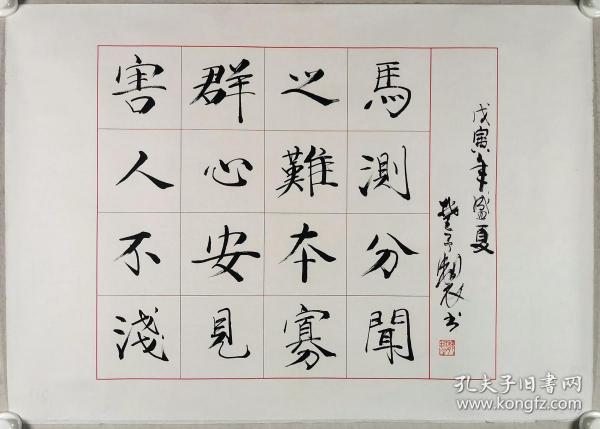 害群之馬
人心難測
不安本分
淺見寡聞
戊寅年盛夏
书
孔夫子旧書网
www.kongfz.com